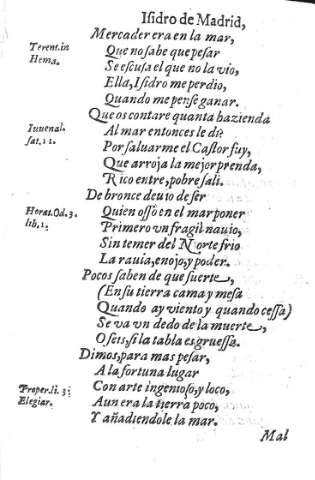 Isidro de Madrid,
Mercader era en la mar,
Terent. in
Hema.
Que no sabe que pesar
Se escusa el que no la vio,
Ella, Isidro me perdio,
Quando me pensè ganar.
Que os contare quanta hazienda
Iuuenal.
sat. 12.
Al mar entonces le di?
Por saluarme el Castor fuy,
Que arroja la mejor prenda,
Rico entre, pobre sali.
De bronce deuio de ser
Horat. Od. 3.
lib. 1.
Quien ossò en el mar poner
Primero vn fragil nauio,
Sin temer del Norte frio
La rauia, enojo, y poder.
Pocos saben de que suerte,
(En su tierra cama y mesa
Quando ay viento y quando cessa)
Se va vn dedo de la muerte,
O seys, si la tabla es gruessa.
Dimos, para mas pesar,
A la fortuna lugar
Proper. li. 3.
Elegiar.
Con arte ingenioso, y loco,
Aun era la tierra poco,
Y añadiendole la mar.
Mal